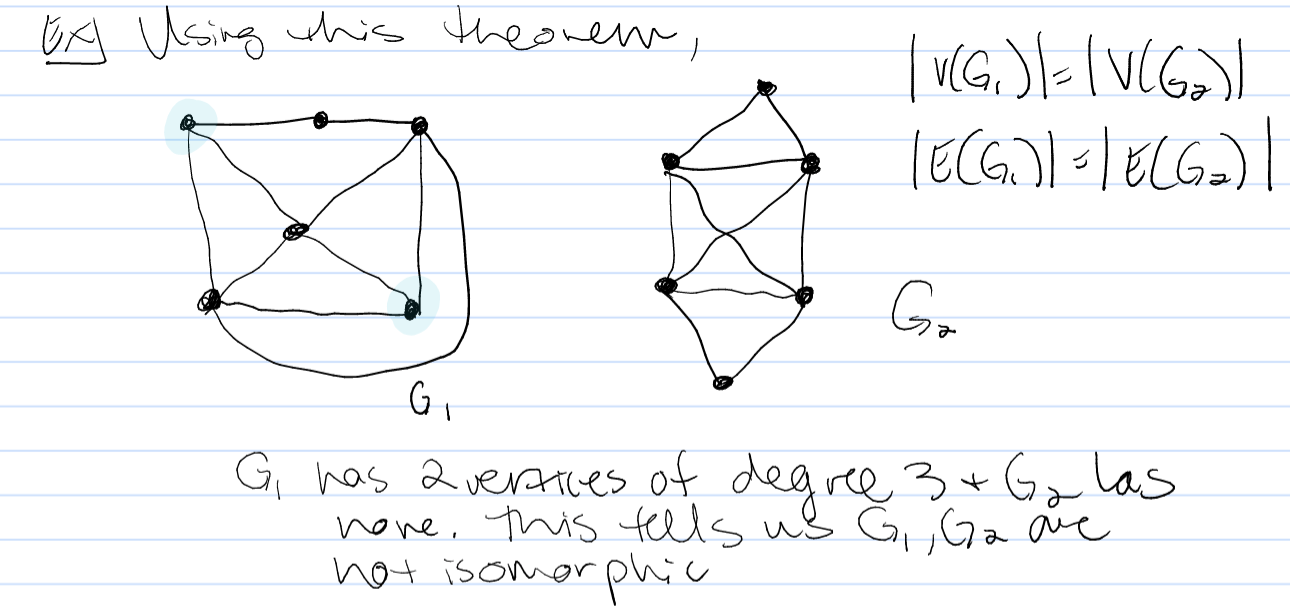 Ex] Using this theorem,
|V(G₁)| = |V(G₂)|
|E(G₁)| = |E(G₂)|
G₁
G₂
G₁ has 2 vertices of degree 3 + G₂ has
none. This tells us G₁, G₂ are
not isomorphic